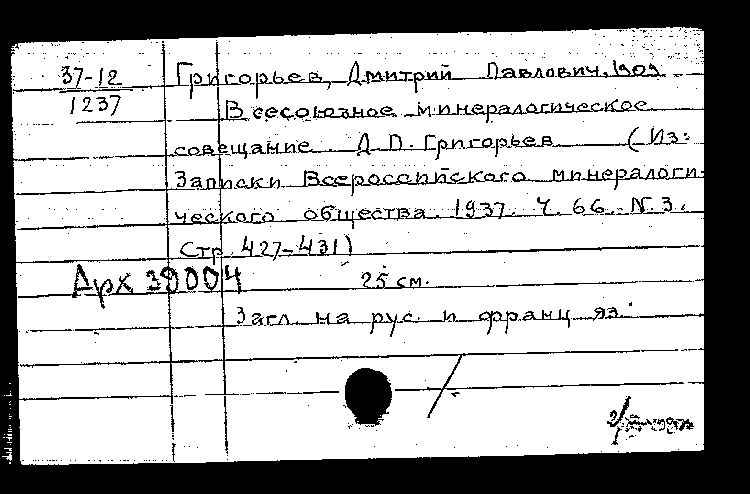 37-12
1237
Григорьев, Дмитрий Павлович, 1909
Всесоюзное минералогическое
совещание Д.П. Григорьев (Из:
Записки Всероссийского минералоги-
ческого общества. 1937. Ч. 66. N. 3.
Стр. 427-431)
Арх 39004
25 см.
Загл. на рус. и франц яз.